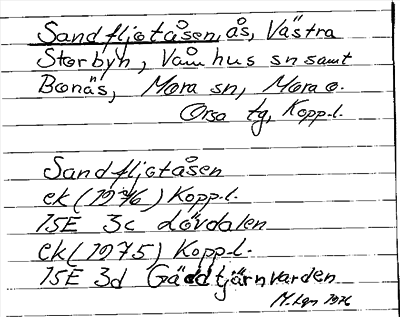 Sandfljotåsen, ås, Västra
Storbyn, Våmhus sn samt
Bonäs, Mora sn, Mora o.
Orsa tg, Kopp.l.
Sandfljotåsen
ek (1976) Kopp.l.
15E 3c Lövdalen
ek (1975) Kopp.l.
15E 3d Gäddtjärnvarden
M. Lgn 1976